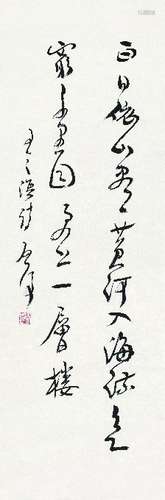 白日依山尽黄河入海流欲
穷千里目更上一层楼
王之涣诗